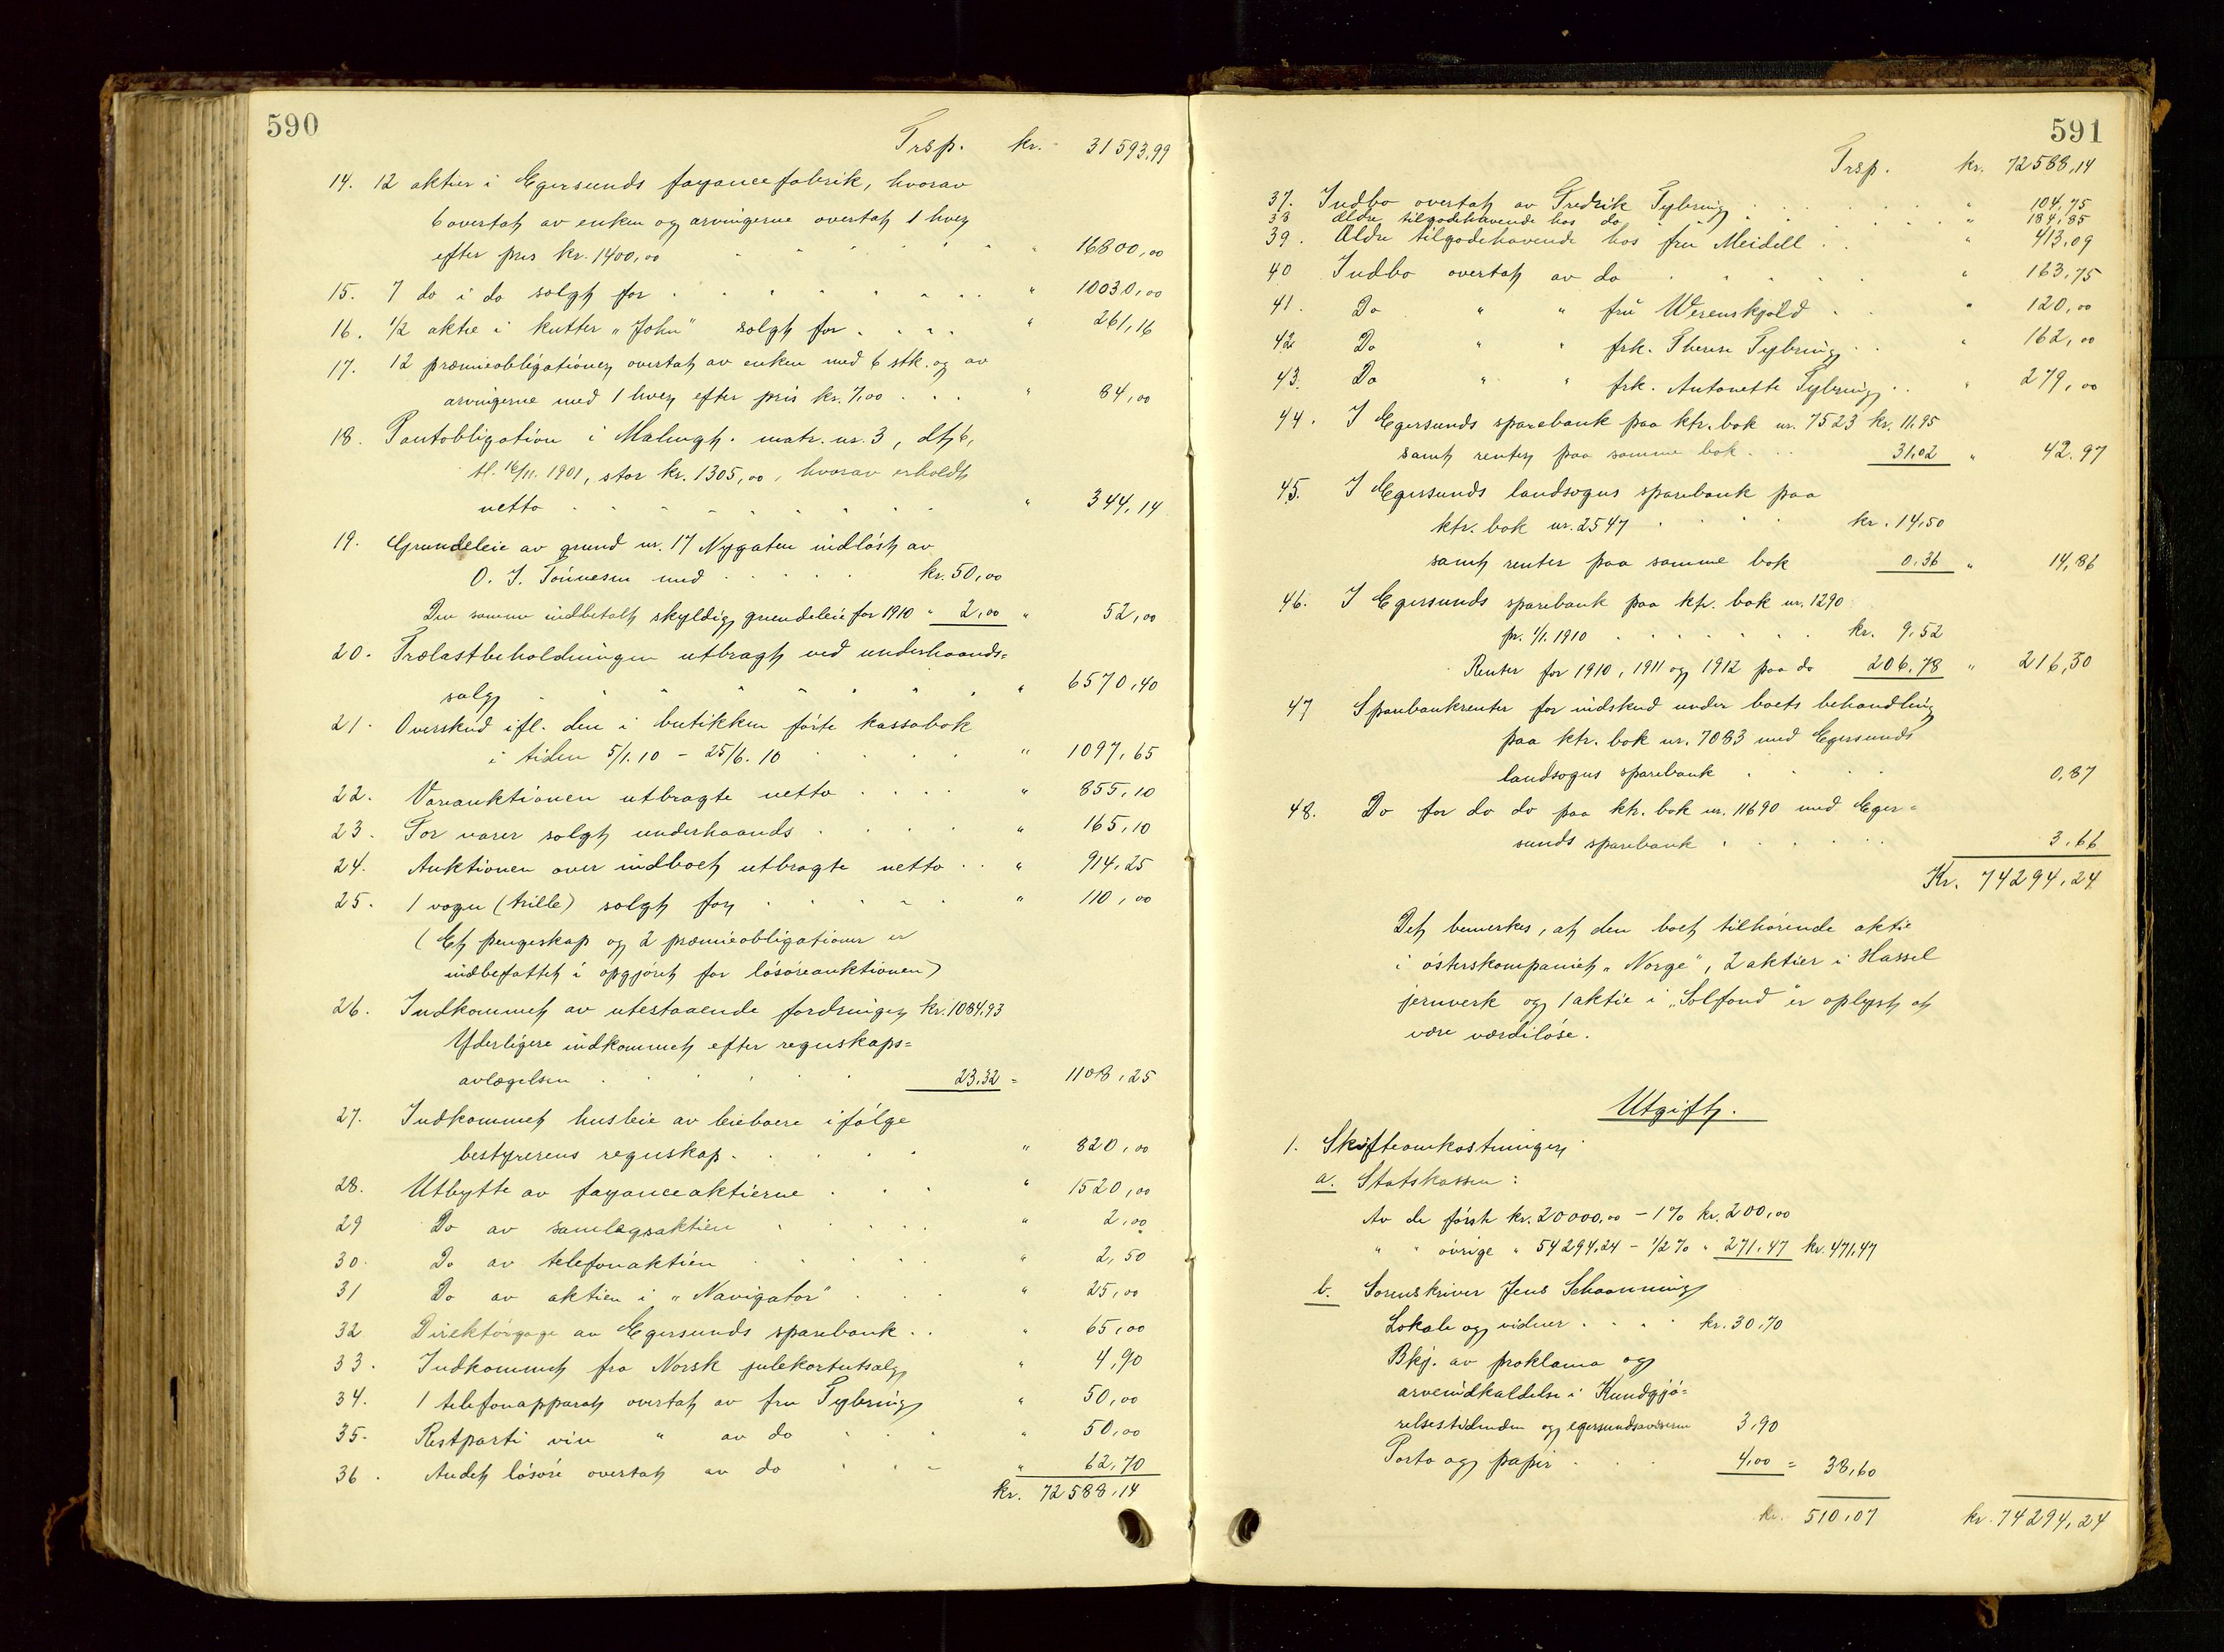 590
Trsp. kr. 31593,99
14. 12 aktier i Egersunds fayancefabrik, hvorav
6 overtat av enken og arvingerne overtat 1 hver
efter pris kr. 1400,00 . . . . . " 16800,00
15. 7 do i do solgt for . . . . . . . " 10030,00
16. 1/2 aktie i kutter "John" solgt for . . . . " 261,16
17. 12 præmieobligationer overtat av enken med 6 stk. og av
arvingerne med 1 hver efter pris kr. 7,00 . . . " 84,00
18. Pantobligation i matr. nr. 3,
16/11. 1901, stor kr. 1305,00, hvorav erholdt
netto . . . . . . . . " 344,14
19. Grundeleie av grund nr. 17 Nygaten indløst av
O. J. Tønnesen med . . . . . kr. 50,00
Den samme indbetalt skyldig grundeleie for 1910 " 2,00 " 52,00
20. Trælastbeholdningen utbragt ved underhaands=
salg . . . . . . . . " 6570,40
21. Overskud ifl. den i butikken førte kassabok
i tiden 5/1.10 - 25/6.10 . . . . " 1097,65
22. Vareauktionen utbragte netto . . . . " 855,10
23. For varer solgt underhaands . . . . " 165,10
24. Auktionen over indboet utbragte netto . . " 914,25
25. 1 vogn (trille) solgt for . . . . . " 110,00
(Et pengeskap og 2 præmieobligationer er
indbefattet i opgjøret for løsøreauktionen)
26. Indkommet av utestaaende fordringer kr. 1084,93
Yderligere indkommet efter regnskaps=
avlæggelsen . . . . . 23,32 = 1108,25
27. Indkommet husleie av leieboere ifølge
bestyrerens regnskap . . . . . " 820,00
28. Utbytte av fayanceaktierne . . . " 1520,00
29 Do av samlagsaktien . . . . . " 2,00
30. Do av telefonaktien . . . . . " 2,50
31 Do av aktien i "Navigator" . . . " 25,00
32 Direktørgage av Egersunds sparebank . . " 65,00
33. Indkommet fra Norsk julekortutsalg " 4,90
34. 1 telefonapparat overtat av fru Tybring " 50,00
35. Restparti vin " av do . . . " 50,00
36. Andet løsøre overtat av do . . . " 62,70
kr. 72588,14
591
Trsp. kr. 72588,14
37. Indbo overtat av Fredrik Tybring . . . . . . " 104,75
38 Ældre tilgodehavende hos do . . . . . . " 184,85
39. Ældre tilgodehavende hos fru Meidell . . " 413,09
40 Indbo overtat av do . . . . . " 163,75
41. Do " " fru Werenskjold . . " 120,00
42 Do " " frk. Therese Tybring . . " 162,00
43. Do " " frk. Antonette Tybring . . " 279,00
44. I Egersunds sparebank paa ktr. bok nr. 7523 kr. 11,95
samt renter paa samme bok . . . 31,02 " 42.97
45. I Egersunds landsogns sparebank paa
ktr. bok nr. 2547 . . . . kr. 14,50
samt renter paa samme bok 0,36 " 14,86
46. I Egersunds sparebank paa ktr. bok nr. 1290
pr. 1/1. 1910 . . . . . . kr. 9,52
Renter for 1910, 1911 og 1912 paa do 206,78 " 216,30
47 Sparebankrenter for indskud under boets behandling
paa ktr. bok nr. 7083 med Egersunds
landsogns sparebank . . . . 0,87
48. Do for do do paa ktr. bok nr. 11690 med Eger=
sunds sparebank . . . . . 3,66
Kr. 74294,24
Det bemerkes, at den boet tilhørende aktie
i østerskompaniet "Norge", 2 aktier i Hassel
jernverk og 1 aktie i "Solfond" er oplyst at
være værdiløse.
Utgift.
1. Skifteomkostninger,
a. Statskassen:
Av de første kr. 20000,00 - 1% kr. 200,00
" " øvrige " 54294,24 - 1/2% " 271,47 kr. 471,47
b. Sorenskriver Jens Schanning
Lokale og vidner . . . . kr. 30,70
Bkj. av proklama og
arveindkaldelse i Kundgjø=
relsestidenden og egersundsaviserne 3,90
Porto og papir . . . 4,00 = 38,60
kr. 510,07 kr. 74294,24